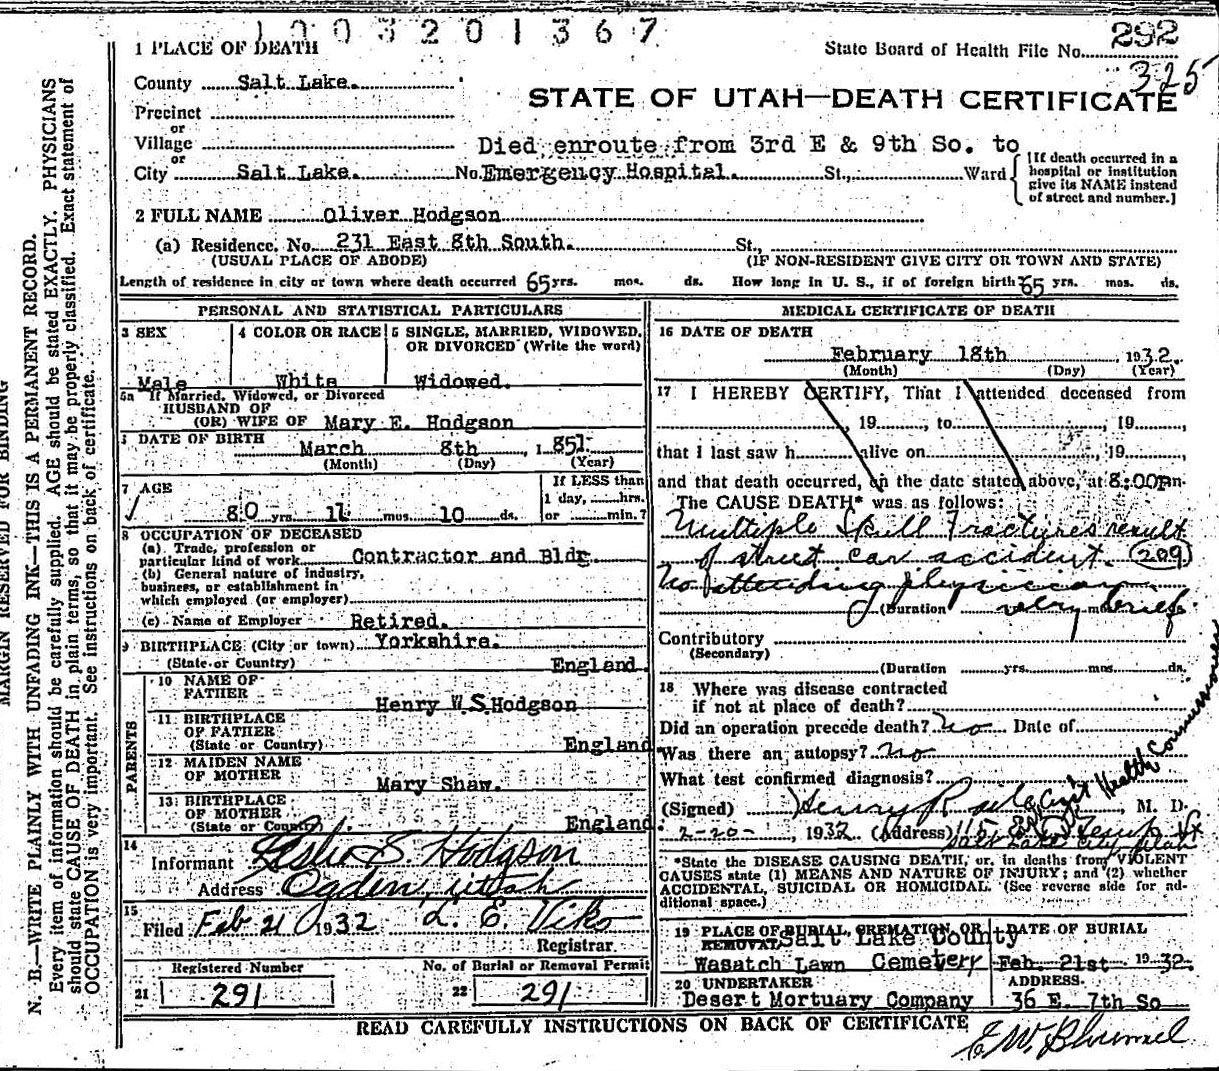 1003201367
1 PLACE OF DEATH
State Board of Health File No. 292
325
County Salt Lake.
STATE OF UTAH—DEATH CERTIFICATE
Precinct
or
Village
Died enroute from 3rd E & 9th So. to
or
City Salt Lake. No. Emergency Hospital. St., Ward
[If death occurred in a hospital or institution give its NAME instead of street and number.]
2 FULL NAME Oliver Hodgson
(a) Residence. No. 231 East 8th South. St.,
(USUAL PLACE OF ABODE) (IF NON-RESIDENT GIVE CITY OR TOWN AND STATE)
Length of residence in city or town where death occurred 65 yrs. mos. ds. How long in U. S., if of foreign birth? 65 yrs. mos. ds.
PERSONAL AND STATISTICAL PARTICULARS
3 SEX
4 COLOR OR RACE
5 SINGLE, MARRIED, WIDOWED, OR DIVORCED (Write the word)
Male White Widowed.
5a If Married, Widowed, or Divorced
HUSBAND OF
(OR) WIFE OF Mary E. Hodgson
DATE OF BIRTH
March 8th, 1851.
(Month) (Day) (Year)
7 AGE
If LESS than
1 day, hrs.
80 yrs. 11 mos. 10 ds. or min.?
8 OCCUPATION OF DECEASED
(a) Trade, profession or
particular kind of work Contractor and Bldr.
(b) General nature of industry,
business, or establishment in
which employed (or employer)
(c) Name of Employer Retired.
9 BIRTHPLACE (City or town) Yorkshire.
(State or Country) England.
PARENTS
10 NAME OF
FATHER
Henry W.S. Hodgson
11 BIRTHPLACE
OF FATHER
(State or Country) England
12 MAIDEN NAME
OF MOTHER Mary Shaw.
13 BIRTHPLACE
OF MOTHER
(State or Country) England
14
Informant Leslie S. Hodgson
Address Ogden, Utah
15
Filed Feb 21 1932 L. E. Viko
Registrar.
Registered Number No. of Burial or Removal Permit
21 291 22 291
MEDICAL CERTIFICATE OF DEATH
16 DATE OF DEATH
February 18th, 1932.
(Month) (Day) (Year)
17 I HEREBY CERTIFY, That I attended deceased from
, 19, to, 19,
that I last saw h alive on, 19,
and that death occurred, on the date stated above, at 8:00Pm.
The CAUSE DEATH* was as follows:
Multiple Skull Fractures result
of street car accident. (209)
No attending physician
(Duration very brief
Contributory
(Secondary)
(Duration yrs. mos. ds.
18 Where was disease contracted
if not at place of death?
Did an operation precede death? no Date of
Was there an autopsy? no
What test confirmed diagnosis?
(Signed) Henry R , M. D.
Health Commissioner
2-20-, 1932 (Address) 115
Salt Lake City Utah
*State the DISEASE CAUSING DEATH, or, in deaths from VIOLENT
CAUSES state (1) MEANS AND NATURE OF INJURY; and (2) whether
ACCIDENTAL, SUICIDAL OR HOMICIDAL. (See reverse side for additional space.)
19 PLACE OF BURIAL, CREMATION, OR REMOVAL DATE OF BURIAL
Salt Lake County
Wasatch Lawn Cemetery Feb. 21st. 1932.
20 UNDERTAKER ADDRESS.
Desert Mortuary Company 36 E. 7th So
READ CAREFULLY INSTRUCTIONS ON BACK OF CERTIFICATE
MARGIN RESERVED FOR BINDING
N. B.—WRITE PLAINLY WITH UNFADING INK—THIS IS A PERMANENT RECORD.
Every item of information should be carefully supplied. AGE should be stated EXACTLY. PHYSICIANS
should state CAUSE OF DEATH in plain terms, so that it may be properly classified. Exact statement of
OCCUPATION is very important. See instructions on back of certificate.